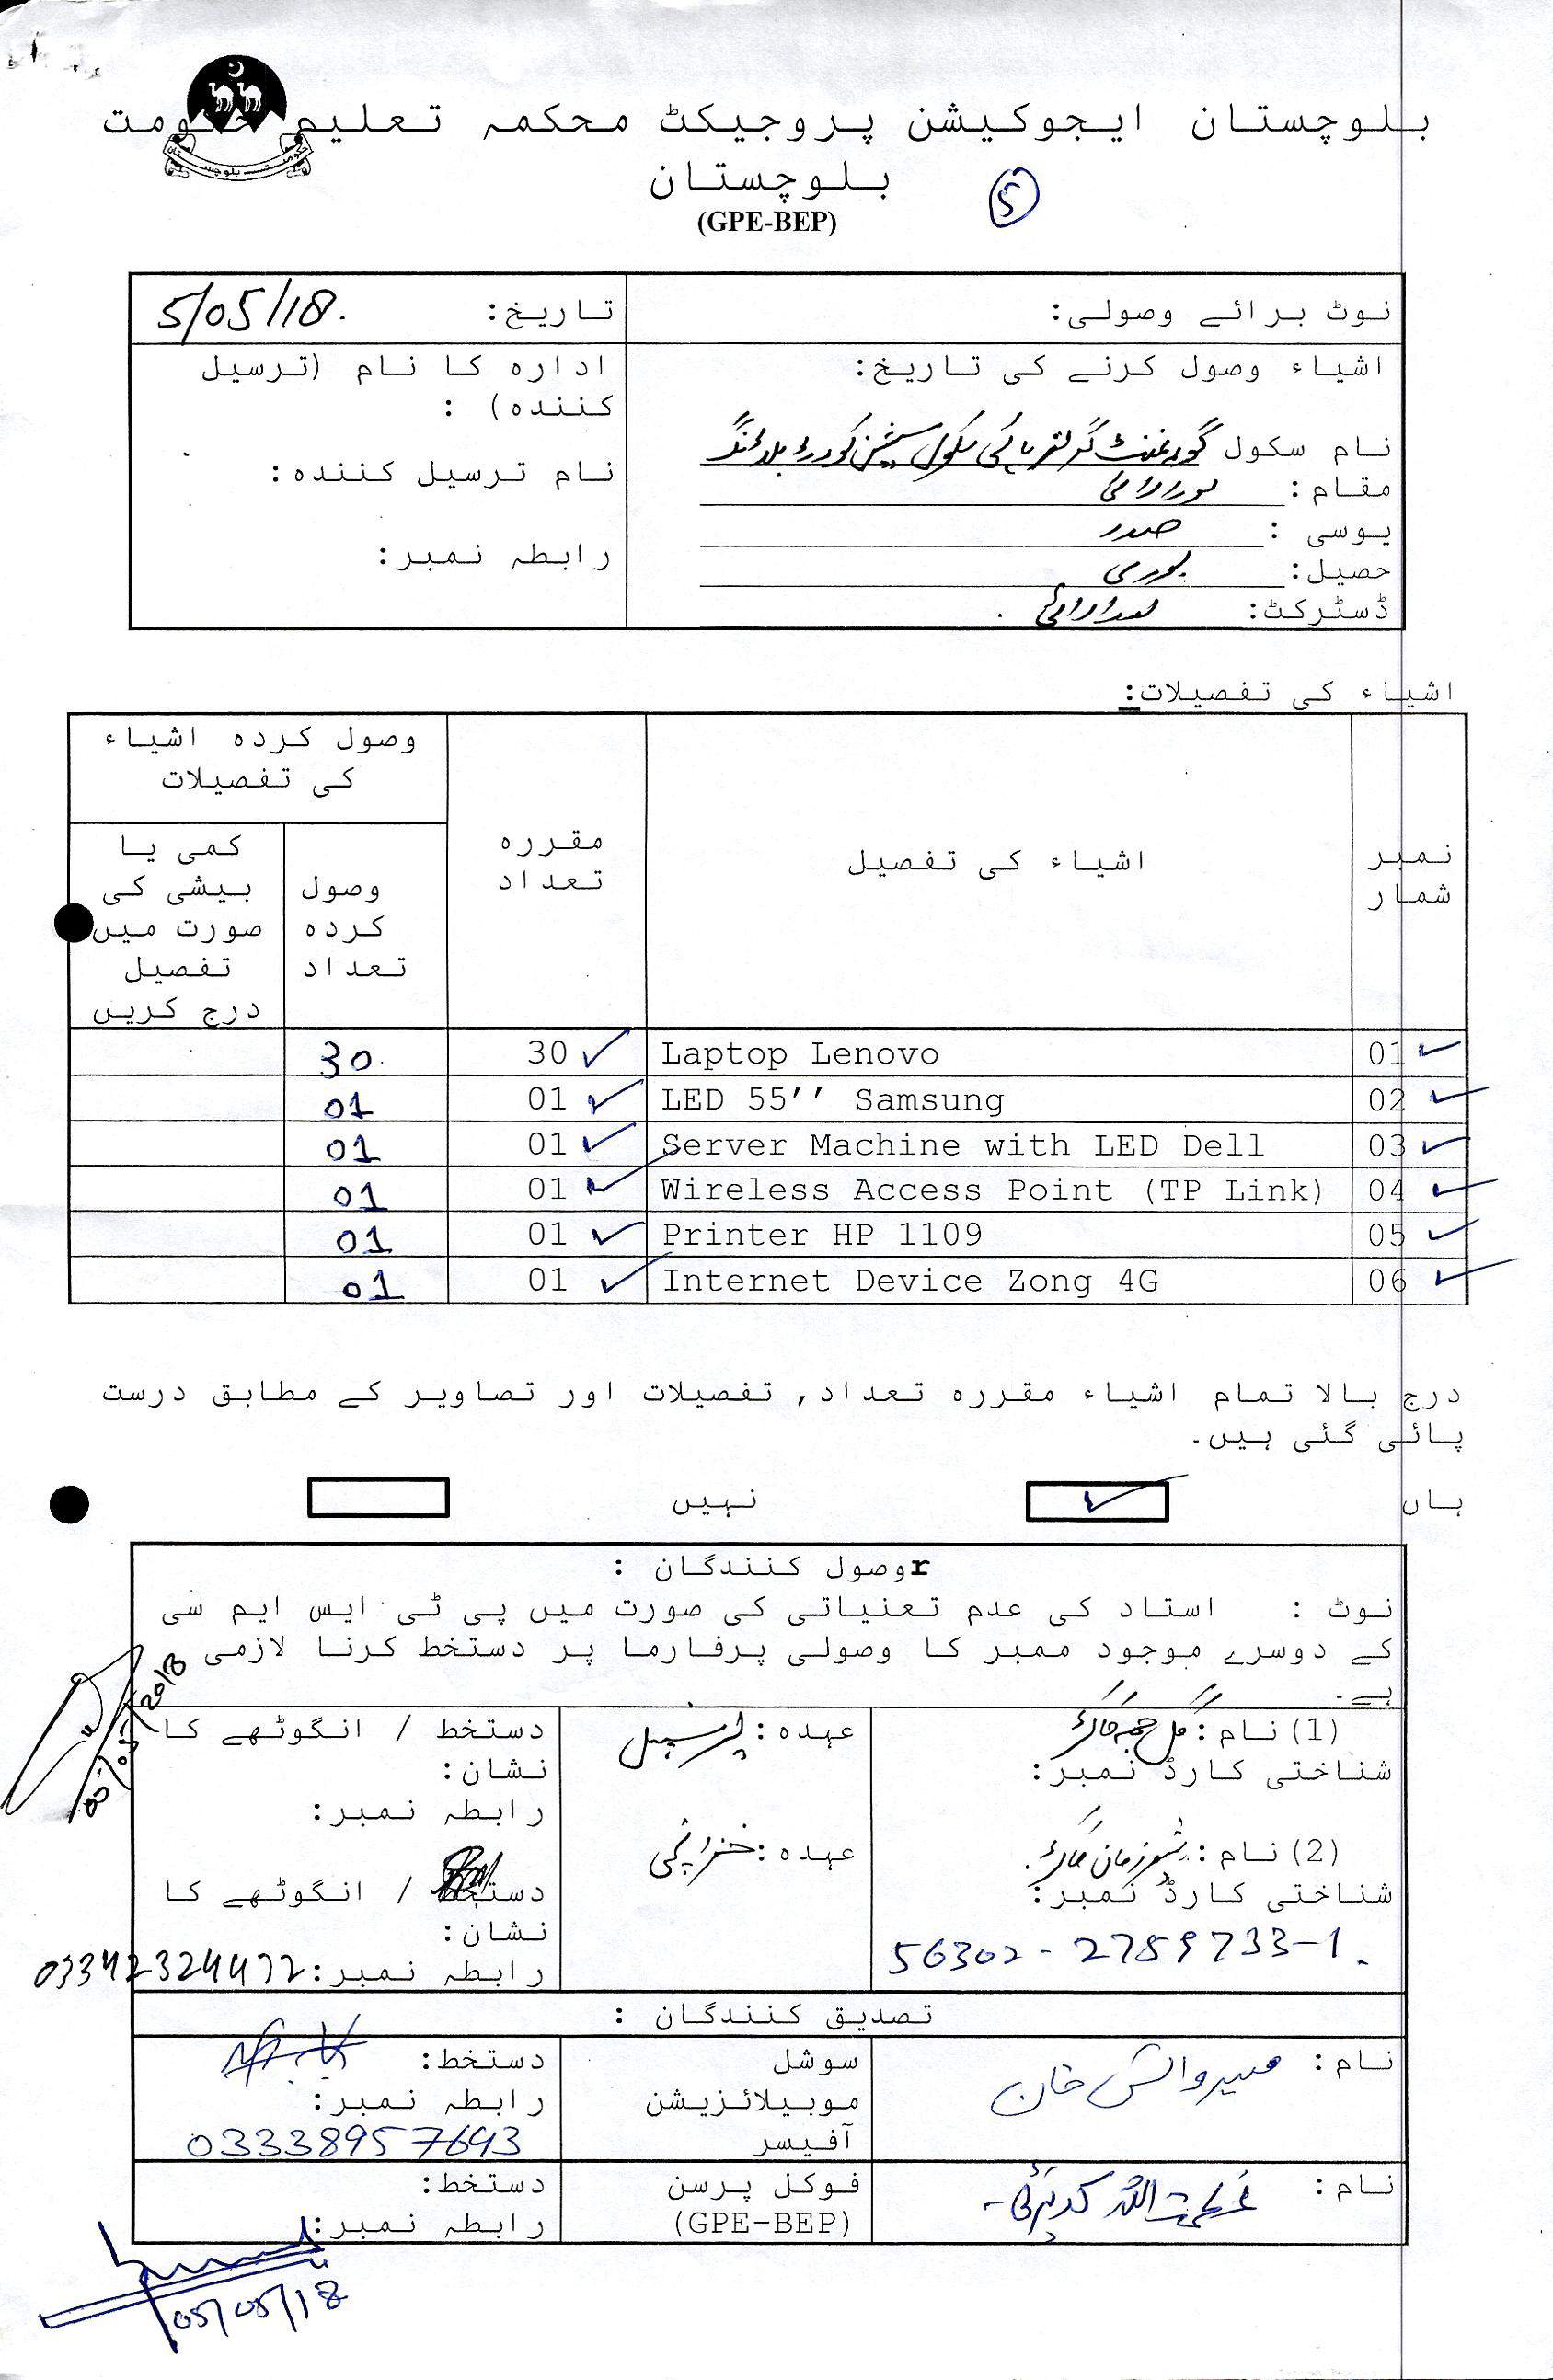 بلوچستان ایجوکیشن پروجیکٹ محکمہ تعلیم حکومت
بلوچستان
(GPE-BEP)
5
حکومت بلوچستان
نوٹ برائے وصولی:
تاریخ: 5/05/18.
اشیاء وصول کرنے کی تاریخ:
نام سکول گورنمنٹ گرلز ہائی سکول سیشن کورٹ بلڈنگ
مقام: لورالائی
یوسی : صدر
حصیل: بوری
ڈسٹرکٹ: لورالائی
ادارہ کا نام (ترسیل
کنندہ) :
نام ترسیل کنندہ:
رابطہ نمبر:
اشیاء کی تفصیلات:
نمبر شمار
اشیاء کی تفصیل
مقررہ تعداد
وصول کردہ اشیاء کی تفصیلات
وصول کردہ تعداد
کمی یا بیشی کی صورت میں تفصیل درج کریں
01 Laptop Lenovo 30 30
02 LED 55′′ Samsung 01 01
03 Server Machine with LED Dell 01 01
04 Wireless Access Point (TP Link) 01 01
05 Printer HP 1109 01 01
06 Internet Device Zong 4G 01 01
درج بالا تمام اشیاء مقررہ تعداد, تفصیلات اور تصاویر کے مطابق درست
پائی گئی ہیں۔
ہاں ✓ نہیں
rوصول کنندگان :
نوٹ : استاد کی عدم تعنیاتی کی صورت میں پی ٹی ایس ایم سی
کے دوسرے موجود ممبر کا وصولی پرفارما پر دستخط کرنا لازمی
ہے۔
(1) نام: گل
شناختی کارڈ نمبر:
عہدہ: پرنسپل
دستخط / انگوٹھے کا
نشان:
رابطہ نمبر:
05/05/2018
(2) نام: زمان کاکڑ
شناختی کارڈ نمبر:
56302-2759733-1.
عہدہ: خزانچی
دستخط / انگوٹھے کا
نشان:
رابطہ نمبر: 03342324472
تصدیق کنندگان :
نام: میروائس خان
سوشل
موبیلائزیشن
آفیسر
دستخط:
رابطہ نمبر:
03338957643
نام: عظمت اللہ
فوکل پرسن
(GPE-BEP)
دستخط:
رابطہ نمبر:
05/05/18